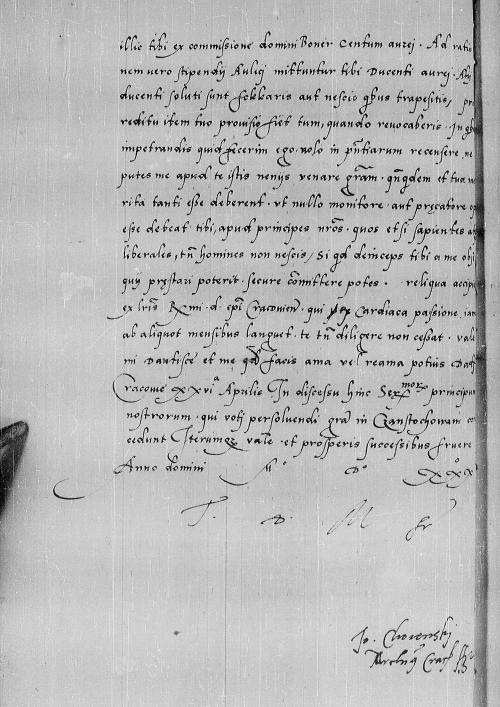 illic tibi ex commissione domini Boner Centum aurej. Ad ratio
nem vero stipendij Aulicj mittuntur tibi Ducenti aurej. Alij
ducenti soluti sunt fokkaris aut nescio qbus trapesitis, pr
reditu item tuo provisũ fiet tum, quando revocaberis. In
impetrandis quid fecerim ego. nolo in pñtiarum recensere, ne
putes me apud te istis nenijs venare grãm. qñqdem et tua
rita tanti esse deberent. ut nullo monitore. aut pręcatore
esse debeat tibi, apud principes nr̃os. quos etsi sapientes
liberales, tñ homines non nescis, Si qd deinceps tibi a me
quj pręstarj poterit. secure cõmittere potes. reliqua accipi
ex lris Rmi. d. epi Cracovien. qui Cardiaca passione, iam
ab aliquot mensibus languet. te tñ diligere non cessat. vale
mi Dantisce et me qd facis ama vel reama potius Dat
Cracovie xxvia Aprilis In discessu hinc Sermorum principum
nostrorum. qui voti persolvendi gra in Czanstochowam
cedunt Iterumqz vale. et prosperis successibus fruere
Anno domini Mo Do xxoxo
T. D. M
Jo. Choienskj
Archidy Crac